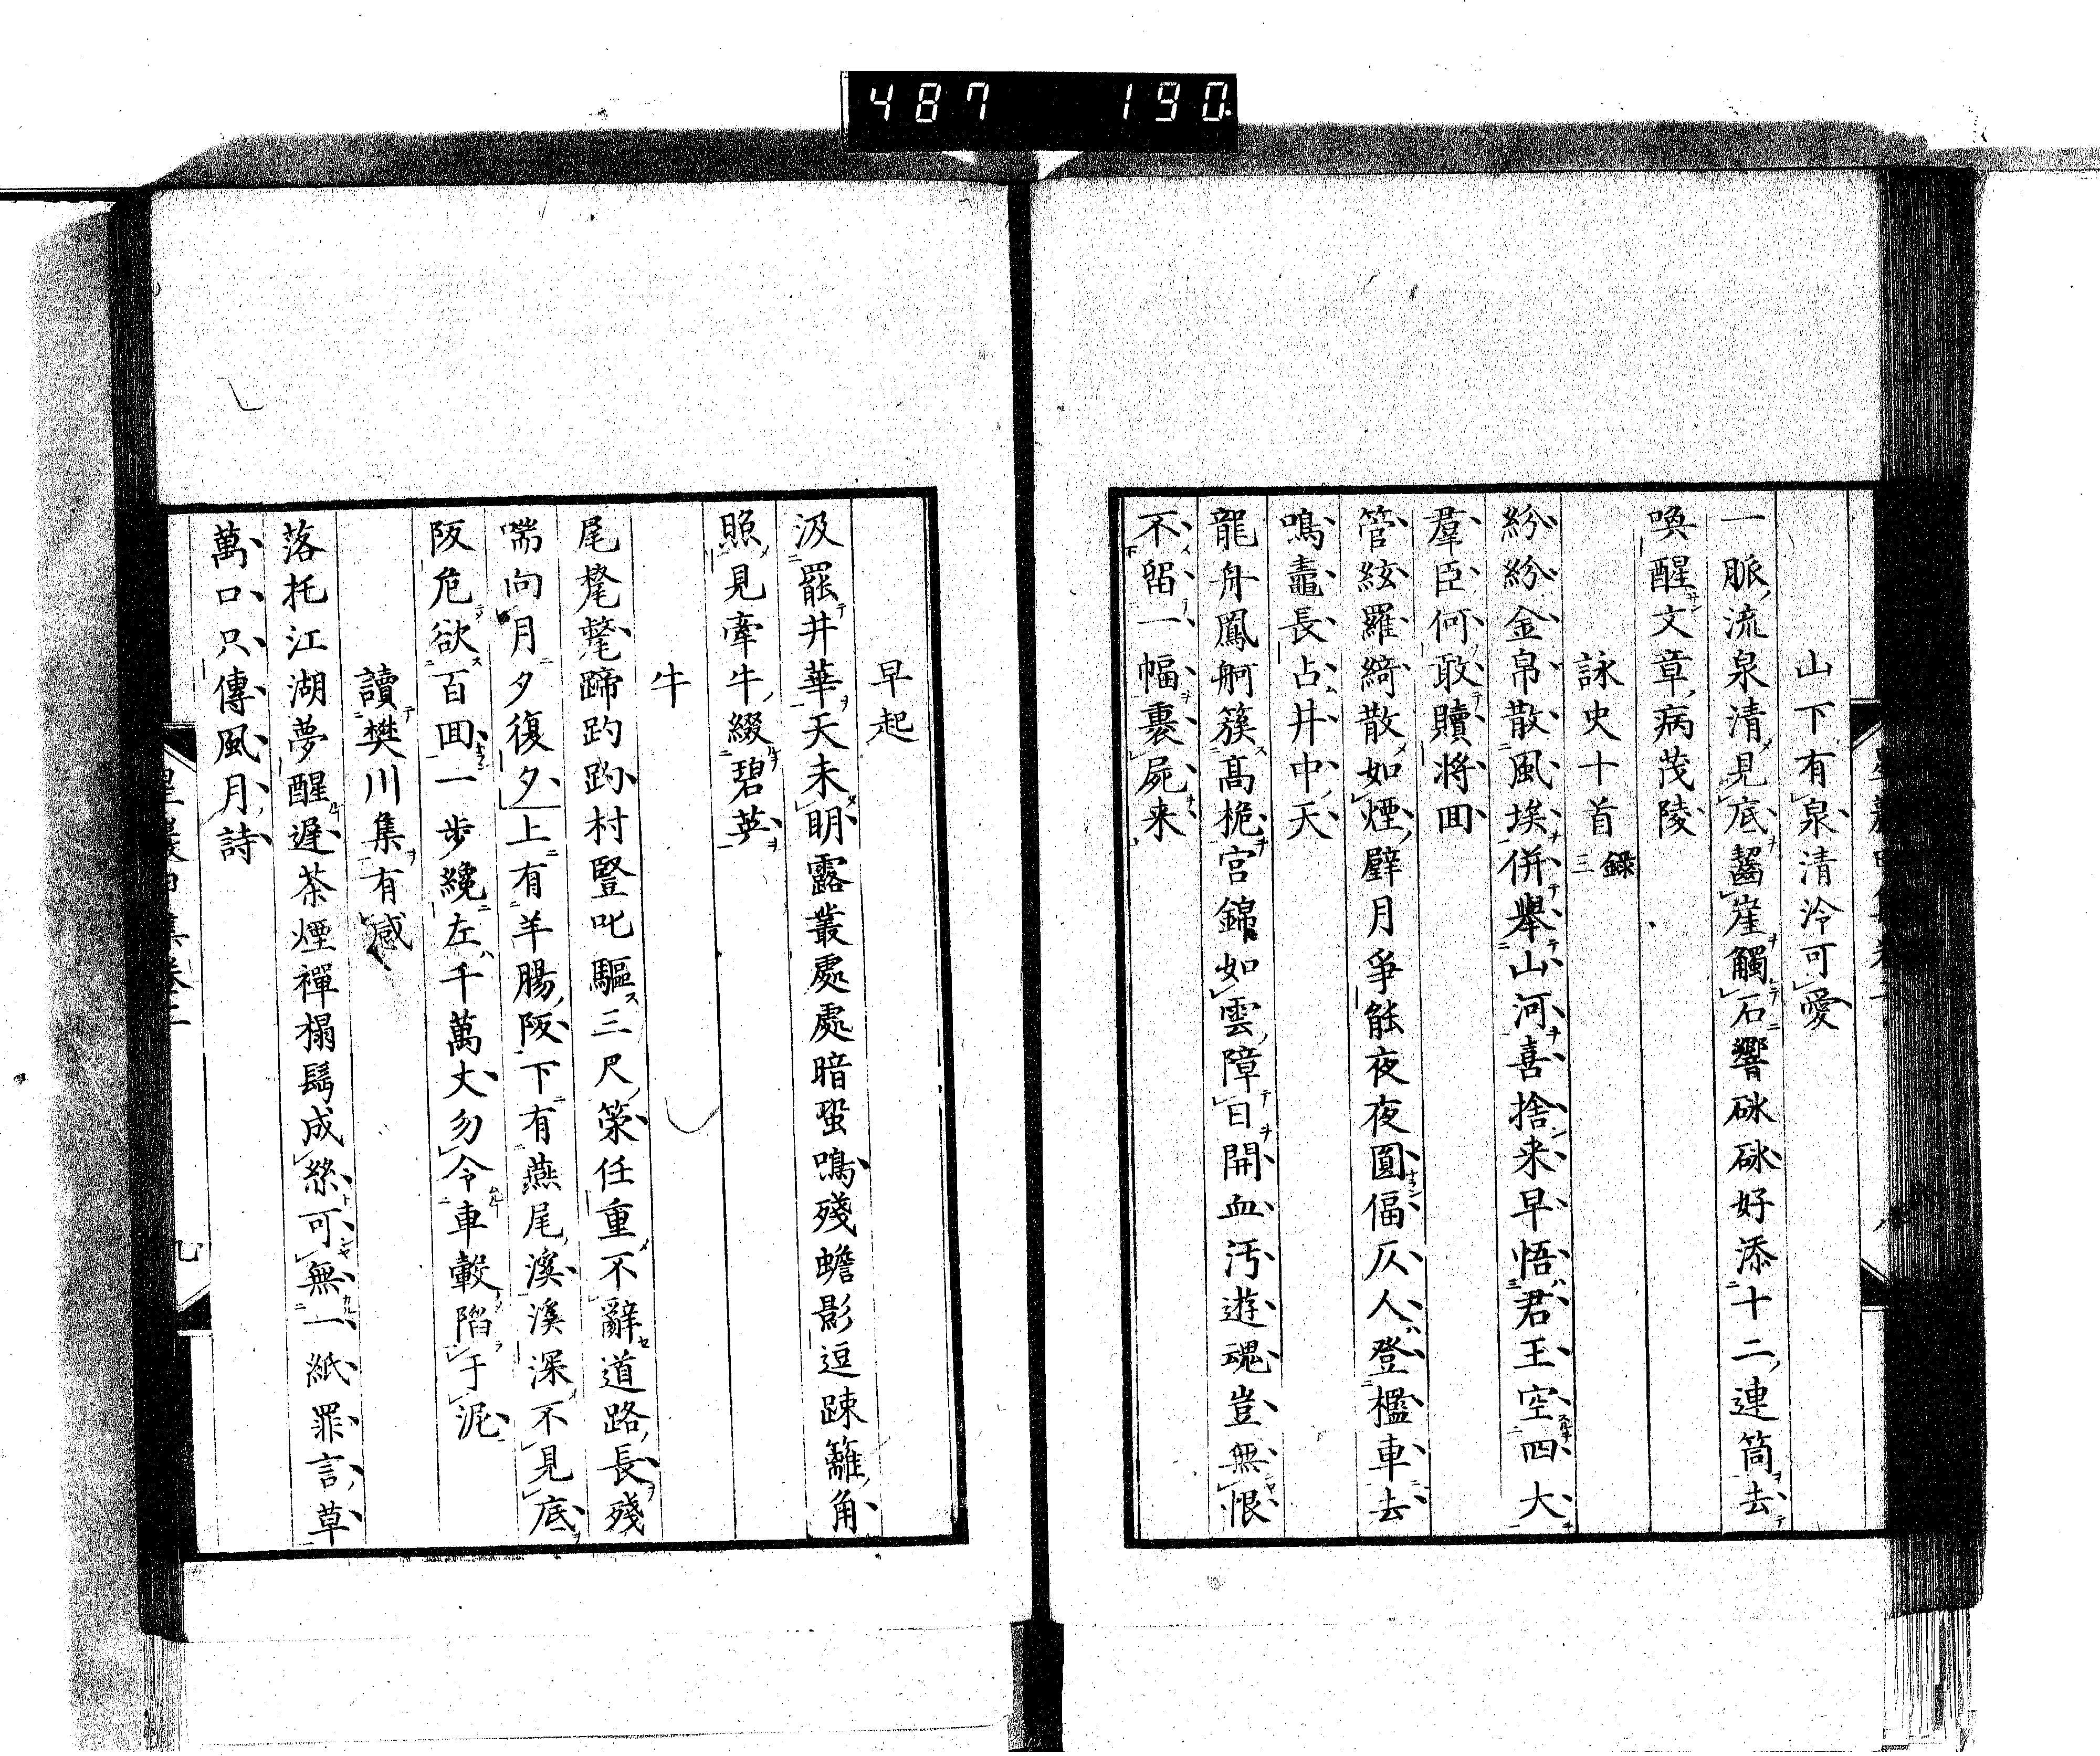 487 190
山下有泉清冷可愛
一脈流泉清見底齧崖觸石響砯砯好添十二連筒去
喚醒文章病茂陵
詠史十首錄三
紛紛金帛散風埃併舉山河喜捨来早悟君王空四大
羣臣何敢贖將回
管絃羅綺散如煙璧月爭能夜夜圓偪仄人登檻車去
鳴鼃長占井中天
龍舟鳳舸簇高桅宮錦如雲障日開血汚遊魂豈無恨
不留一幅裹屍来
早起
汲罷井華天未明露叢處處暗蛩鳴殘蟾影逗踈籬角
照見牽牛綴碧英
牛
尾毿毿蹄趵趵村豎叱驅三尺策任重不辭道路長殘
喘向月夕復夕上有羊腸阪下有燕尾溪溪深不見底
阪危欲百回一步纔左千萬丈勿令車轂陷于泥
讀樊川集有感
落托江湖夢醒遲茶煙禪榻鬂成絲可無一紙罪言草
萬口只傳風月詩
星巖
集卷二